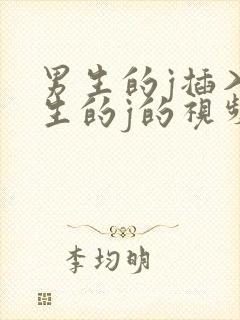 男生的j插入
生的j的視频
李均明